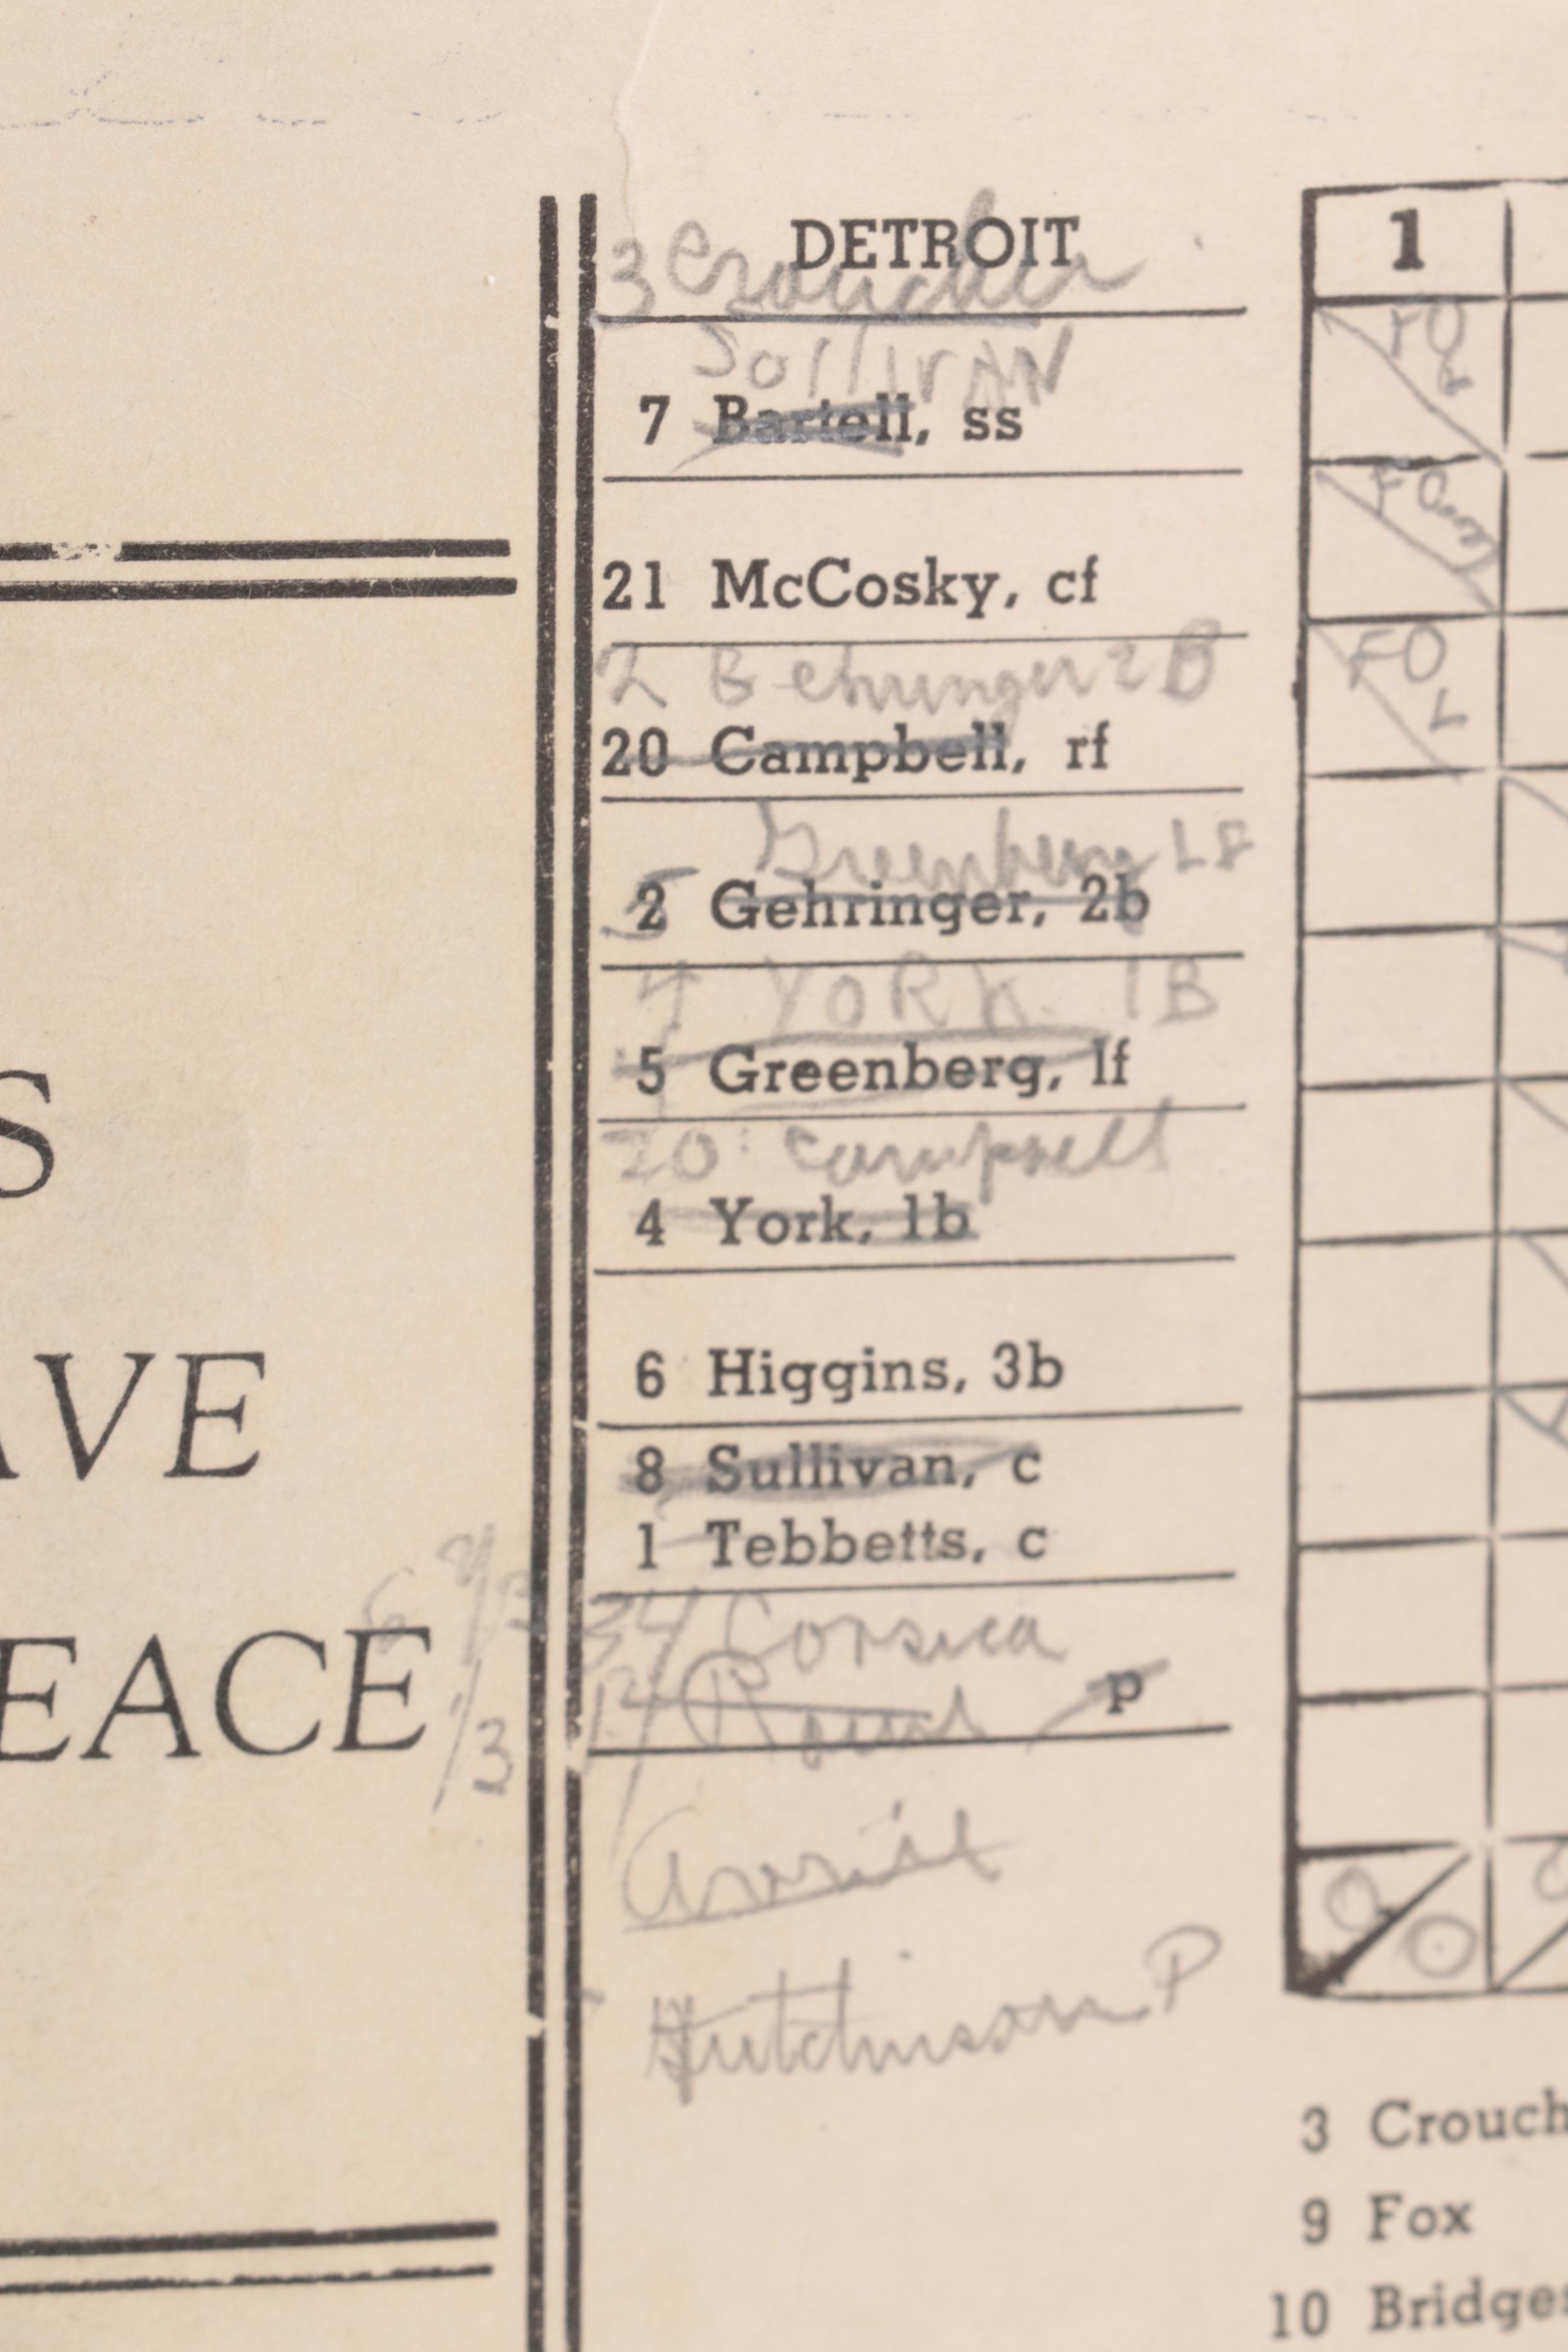 DETROIT
1
3 Croucher
Sullivan
7 Bartell, ss
FO
FO
21 McCosky, cf
FO
2 Gehringer 2B
20 Campbell, rf
Greenberg LF
2 Gehringer, 2b
4 YORK 1B
5 Greenberg, lf
20 Campbell
4 York, 1b
6 Higgins, 3b
8 Sullivan, c
1 Tebbetts, c
34 Corsica
p
1/3
S
AVE
EACE
Hutchinson P
3 Crouch
9 Fox
10 Bridges